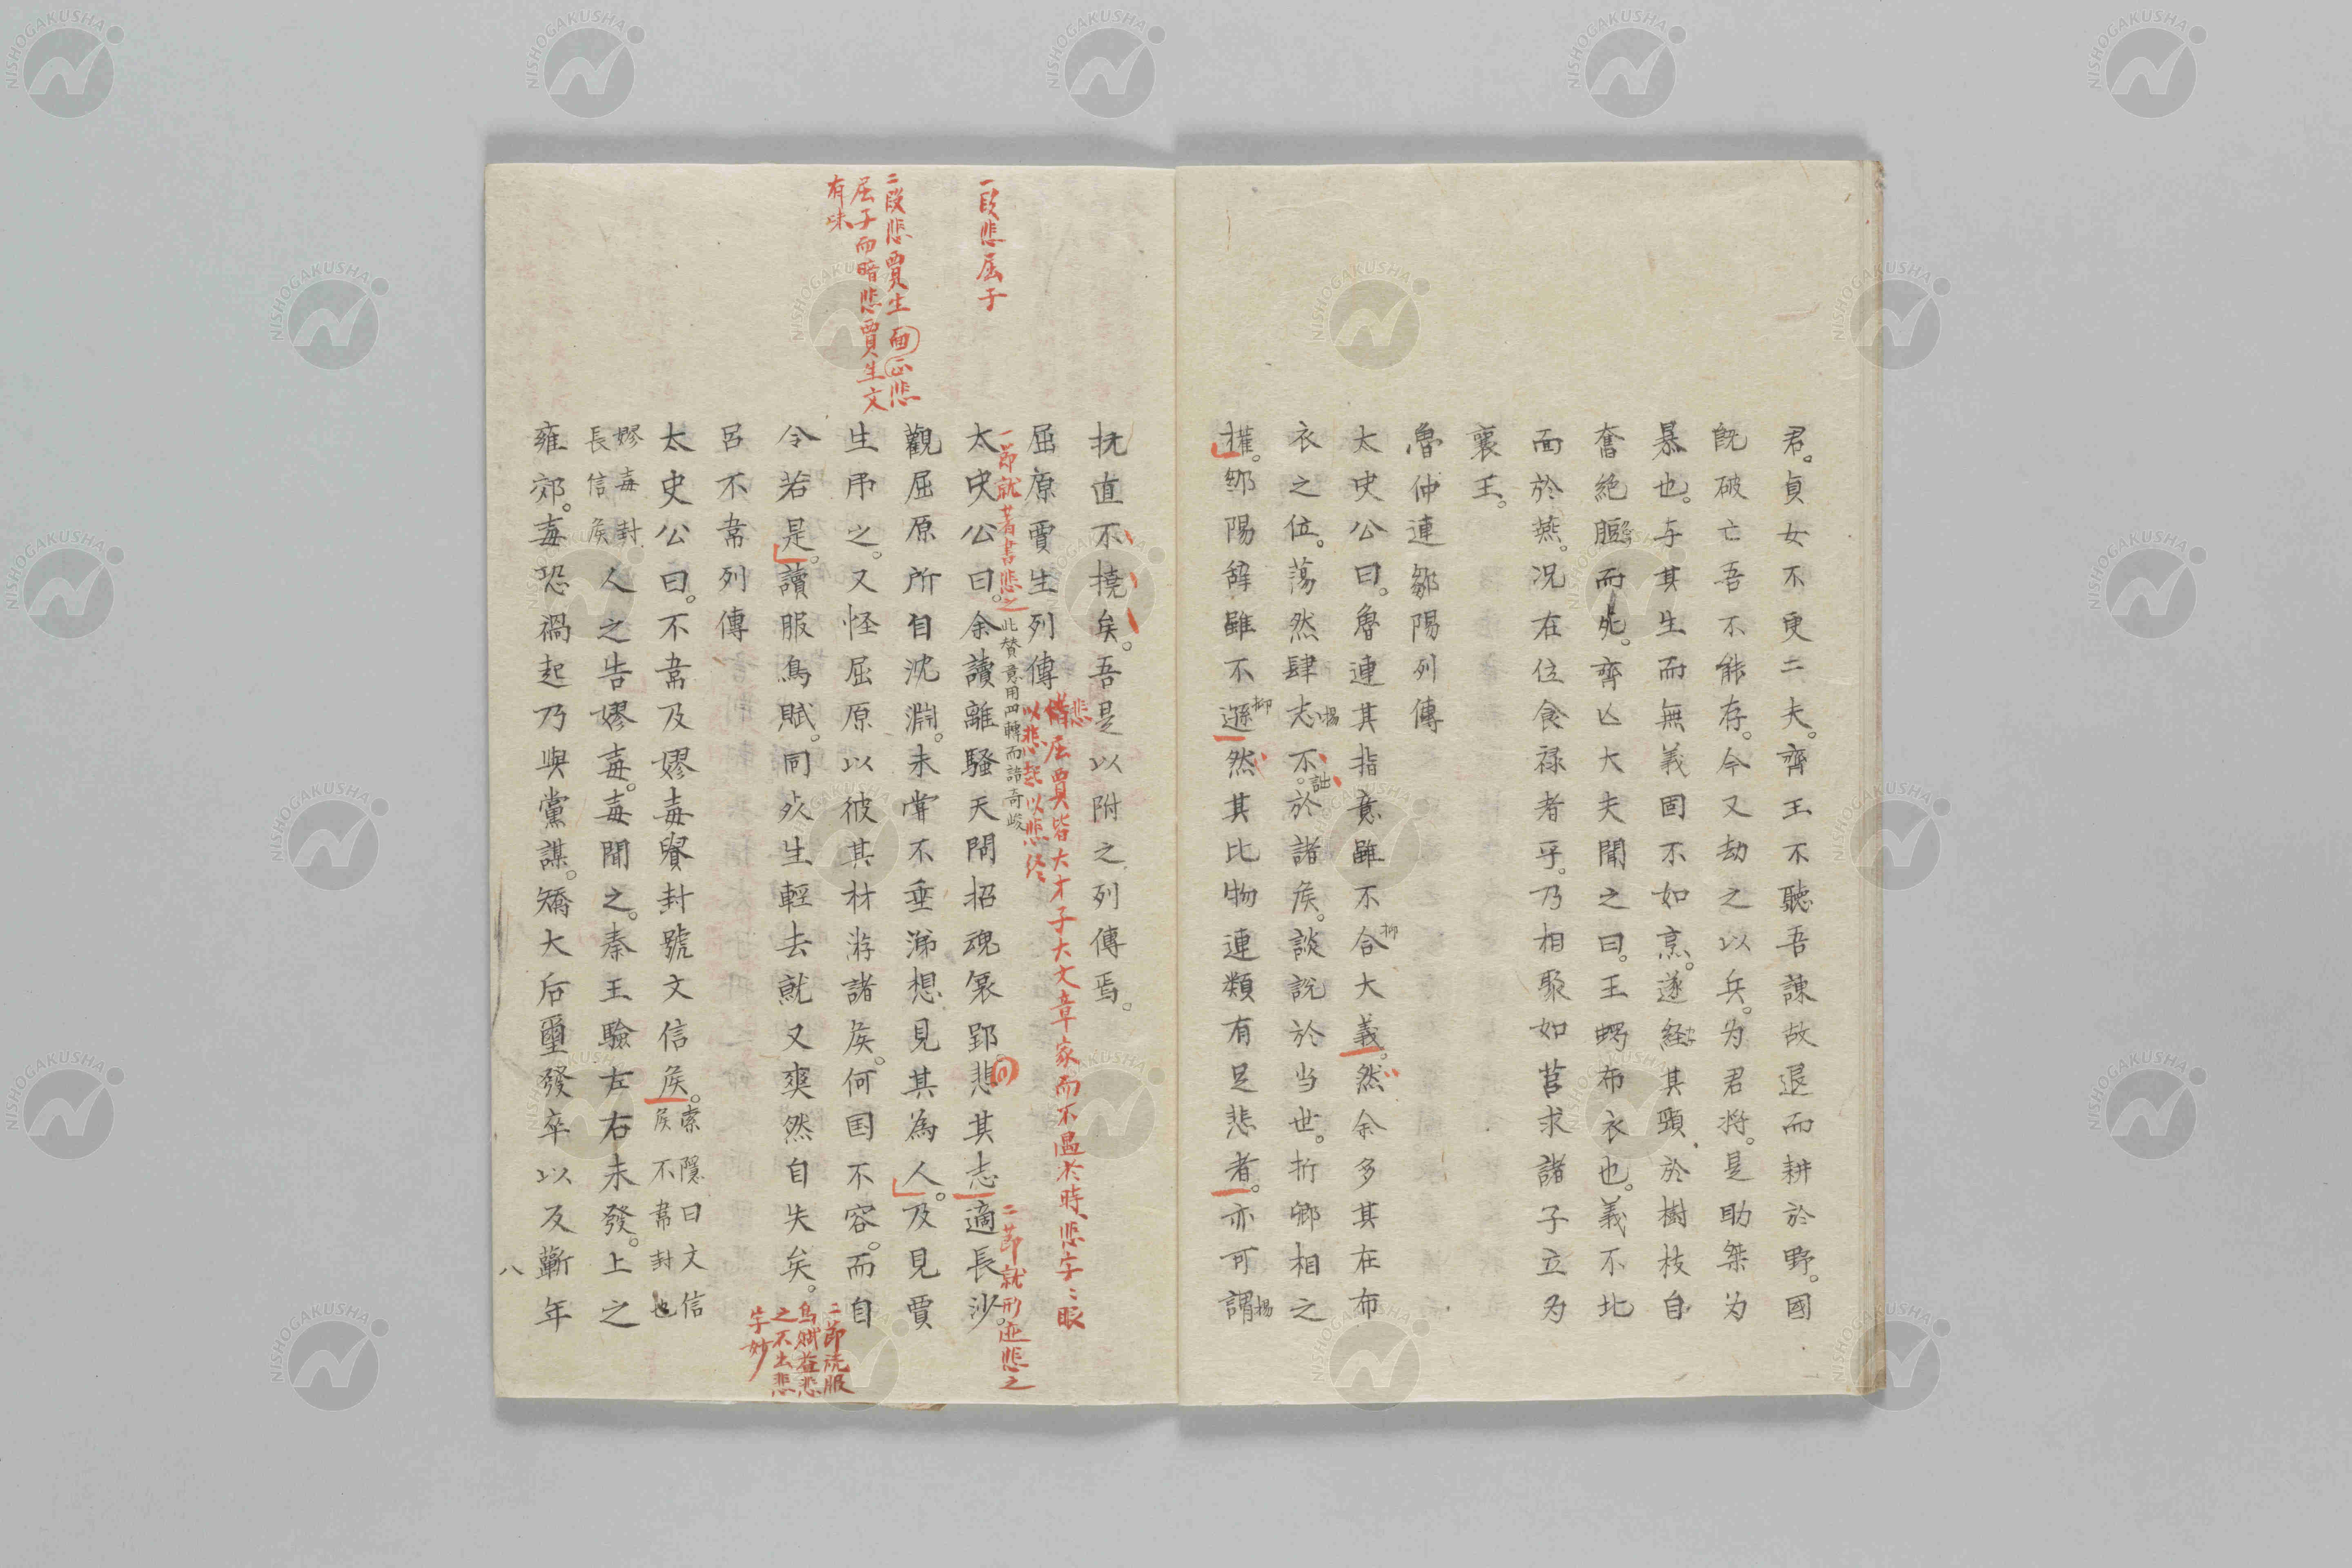 君。貞女不更二夫。齊王不聽吾諫故退而耕於野。國
既破亡吾不能存。今又劫之以兵。为君将。是助桀为
暴也。与其生而無義固不如烹。遂経其頸於樹枝自
奮絶脰而死。齊亡大夫聞之曰。王蠋布衣也。義不北
面於燕。况在位食禄者乎。乃相聚如莒求諸子立为
襄王。
魯仲連鄒陽列傳
太史公曰。魯連其指意雖不合大義。然余多其在布
衣之位。蕩然肆志。不詘於諸侯。談説於当世。折卿相之
權。鄒陽辞雖不遜然其比物連類有足悲者。亦可謂
抑
揚
抑
揚
抗直不撓矣。吾是以附之列傳焉。
屈原賈生列傳
悲
屈賈皆大才子大文章家而不遇於時、悲字〻眼
以悲起以悲終
一節就著書悲之
此賛意用四轉而語奇峻
二節就形迹悲之
太史公曰。余讀離騒天問招魂哀郢。悲其志適長沙。
觀屈原所自沈淵。未甞不垂涕想見其為人。及見賈
生弔之。又怪屈原以彼其材游諸侯。何国不容。而自
令若是。讀服鳥賦。同死生輕去就又爽然自失矣。
一段悲屈子
二段悲賈生而正悲
屈子而暗悲賈生文
有味
二節読服
鳥賦益悲
之不出悲
字妙
呂不韋列傳
太史公曰。不韋及嫪毐貴封號文信侯。索隠曰文信
侯不韋封也
嫪毐封
長信侯人之告嫪毐。毐聞之。秦王驗左右未發。上之
雍郊。毐恐禍起乃與黨謀。矯大后璽發卒以及蘄年
八
NISHOGAKUSHA